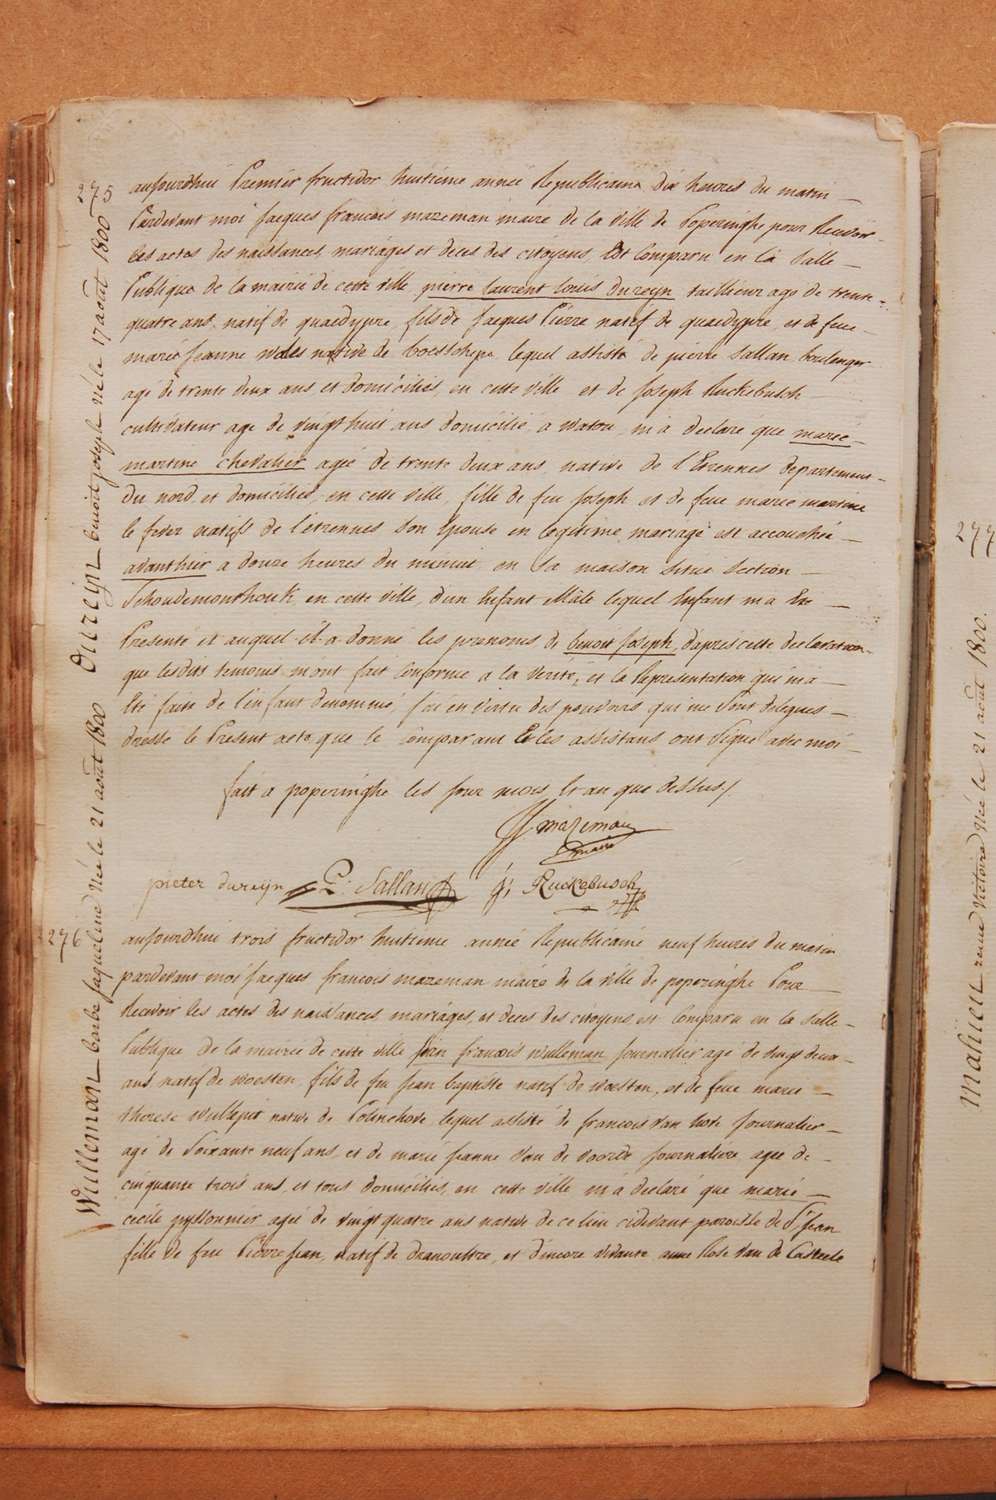 275
Dureijn benoit joseph né le 17 août 1800
aujourdhui Premier fructidor huitieme année Republicaine dix heures du matin
Pardevant moi Jacques francois mazeman maire de la ville de Poperinghe pour Recevoir
les actes des naissances, mariages et deces des citoyens, Est Comparu en la Salle
Publique de la mairie de cette ville pierre laurent louis dureyn taillieur age de trente
quatre ans, natif de quaedypre, fils de Jacques Pierre natif de quaedypre, et de feue
marie Jeanne native de boesschepe lequel assisté de pierre Sallan boulenger
age de trente deux ans, et domicilié, en cette ville et de Joseph Ruckebusch
cultivateur age de vingt huit ans domicilié, a watou, m'a declaré que marie
martine chevalier agée de trente deux ans, native de l'Etrennes departement
du nord et domiciliée, en cette ville, fille de feu Joseph et de feue marie martine
le natifs de l'etrennes Son Epouse en legitime mariage est accouchée
avanthier a douze heures du minuit en Sa maison Situe Section
Schoudemonthouk en cette ville, d'un Enfant Mâle lequel Enfant m'a Eté
Presenté et auquel il a donné les prenoms de benoit Joseph, d'apres cette declaration
que lesdits temoins m'ont fait Conforme a la verité, et la Representation qui m'a
Eté faite de l'enfant denommé, j'ai en vertu des pouvoirs qui me Sont delegues
dressé le Present acte que le Comparant Et les assistans ont Signé avec moi
fait a poperinghe les jour mois Et an que dessus/
JJ mazeman
maire
pieter dureijn P: Sallan J: Ruckebusch
276
Wulleman barbe jaqueline Née le 21 août 1800
aujourdhui trois fructidor huitieme année Republicaine neuf heures du matin
pardevant moi Jacques francois mazeman maire de la ville de poperinghe Pour
Recevoir les actes des naissances mariages, et deces des citoyens est Comparu en la Salle
Publique de la mairie de cette ville jean francois wulleman journalier agé de vingt deux
ans natif de woesten, fils de feu jean baptiste natif de woesten, et de feue marie
therese native de Polinchove, lequel assisté de francois van journalier
agé de Soixante neuf ans, et de marie jeanne van de voorde journaliere agée de
cinquante trois ans, et tous domiciliés, en cette ville m'a declaré que marie
cecile pyssonnier agée de vingt quatre ans native de ce lieu cidevant paroisse de St Jean
fille de feu Pierre jean, natif de dranoultre, et d'encore vivante anne Rose van de Casteele
277
Mahieu reine victoire Née le 21 août 1800.